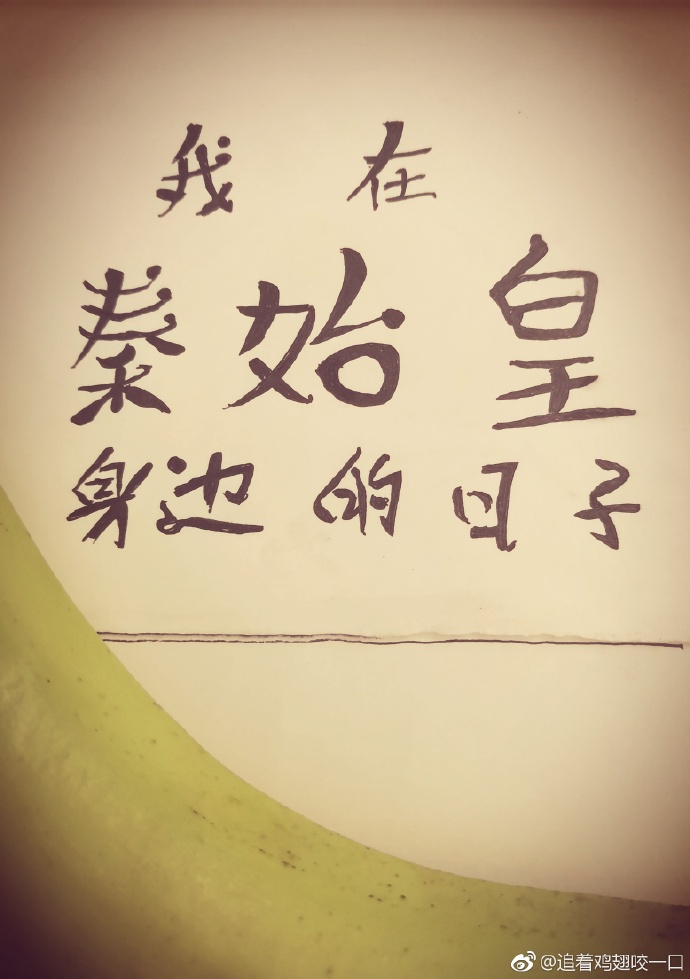 我在
秦始皇
身边的日子
@追着鸡翅咬一口